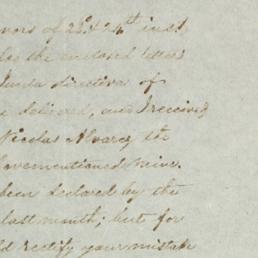 vors of 23d & 24th inst
the enclosed letters
Junta directiva of
e delivered, and I received
Nicolas Alvarez the
bovementioned mine.
been declared by the
last month; but for
ld rectify your mistake